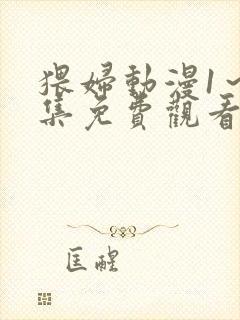 猥婦動漫1~
集免費觀看
匡醒